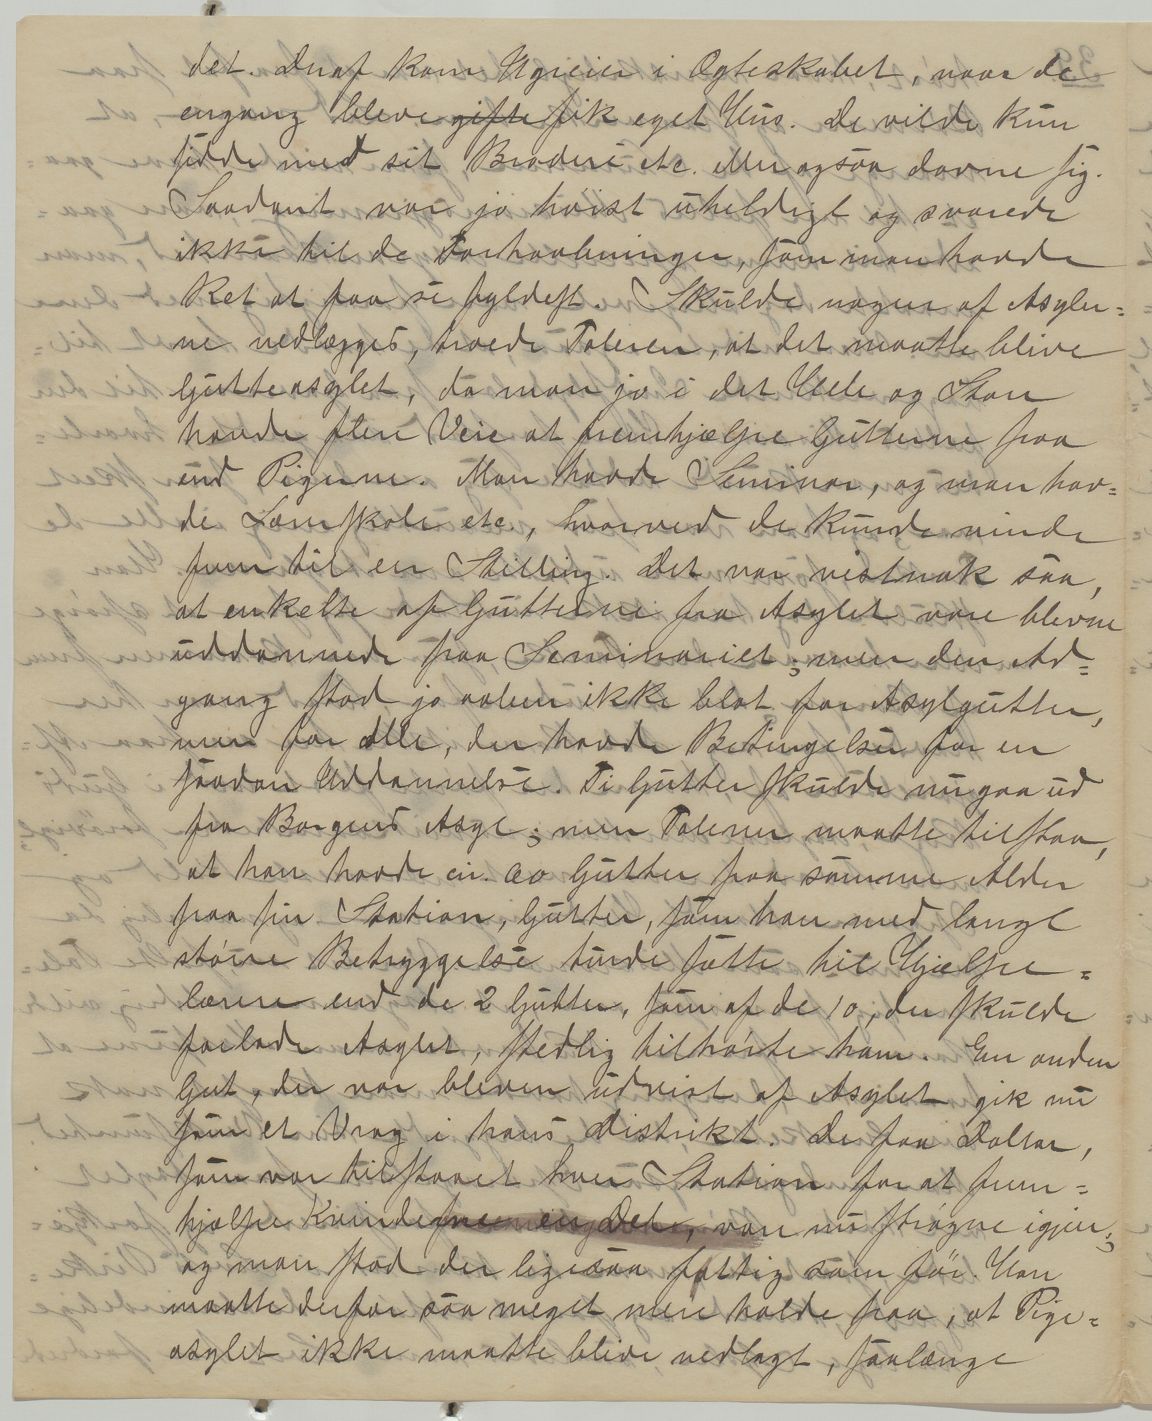 det. Deraf kom Ugreier i Ægteskabet, naar de
engang bleve gifte fik eget Hus. De vilde kun
sidde med sit Broderi etc. eller ogsaa dovne sig.
Saadant var jo høist uheldigt og svarede
ikke til de Forhaabninger, som man havde
Ret at faa se fyldest. Skulde nogen af Asyler=
ne nedlægges, troede Taleren, at det maatte blive
Gutteasylet, da man jo i det Hele og Store
havde flere Veie at fremhjælpe Gutterne paa
end Pigerne. Man havde Seminar, og man hav=
de Lærerskole etc, hvorved de kunde vinde
frem til en Stilling. Det var vistnok saa,
at enkelte af Gutterne fra Asylet vare blevne
uddannede paa Seminariet; men den Ad=
gang stod jo aaben ikke blot for Asylgutter,
men for Alle, der havde Betingelser for en
saadan Uddannelse. Ti Gutter skulde nu gaa ud
fra Borgens Asyl; men Taleren maatte tilstaa,
at han havde en 20 Gutter paa samme Alder
paa sin Station, Gutter, som han med langt
større Betryggelse turde sætte til Hjælpe=
lærere end de 2 Gutter, som af de 10, der skulde
forlade Asylet, stedlig tilhørte ham. En anden
Gut, der var bleven udvist af Asylet gik nu
som et Vrag i hans Distrikt. De faa Dollar,
som var tilstaaet hver Station for at frem=
hjælpe Kvinderne en Del, var nu strøgne igjen;
og man stod der ligesaa fattig som før. Han
maatte derfor saa meget mere holde paa, at Pige=
asylet ikke maatte blive nedlagt, saalænge